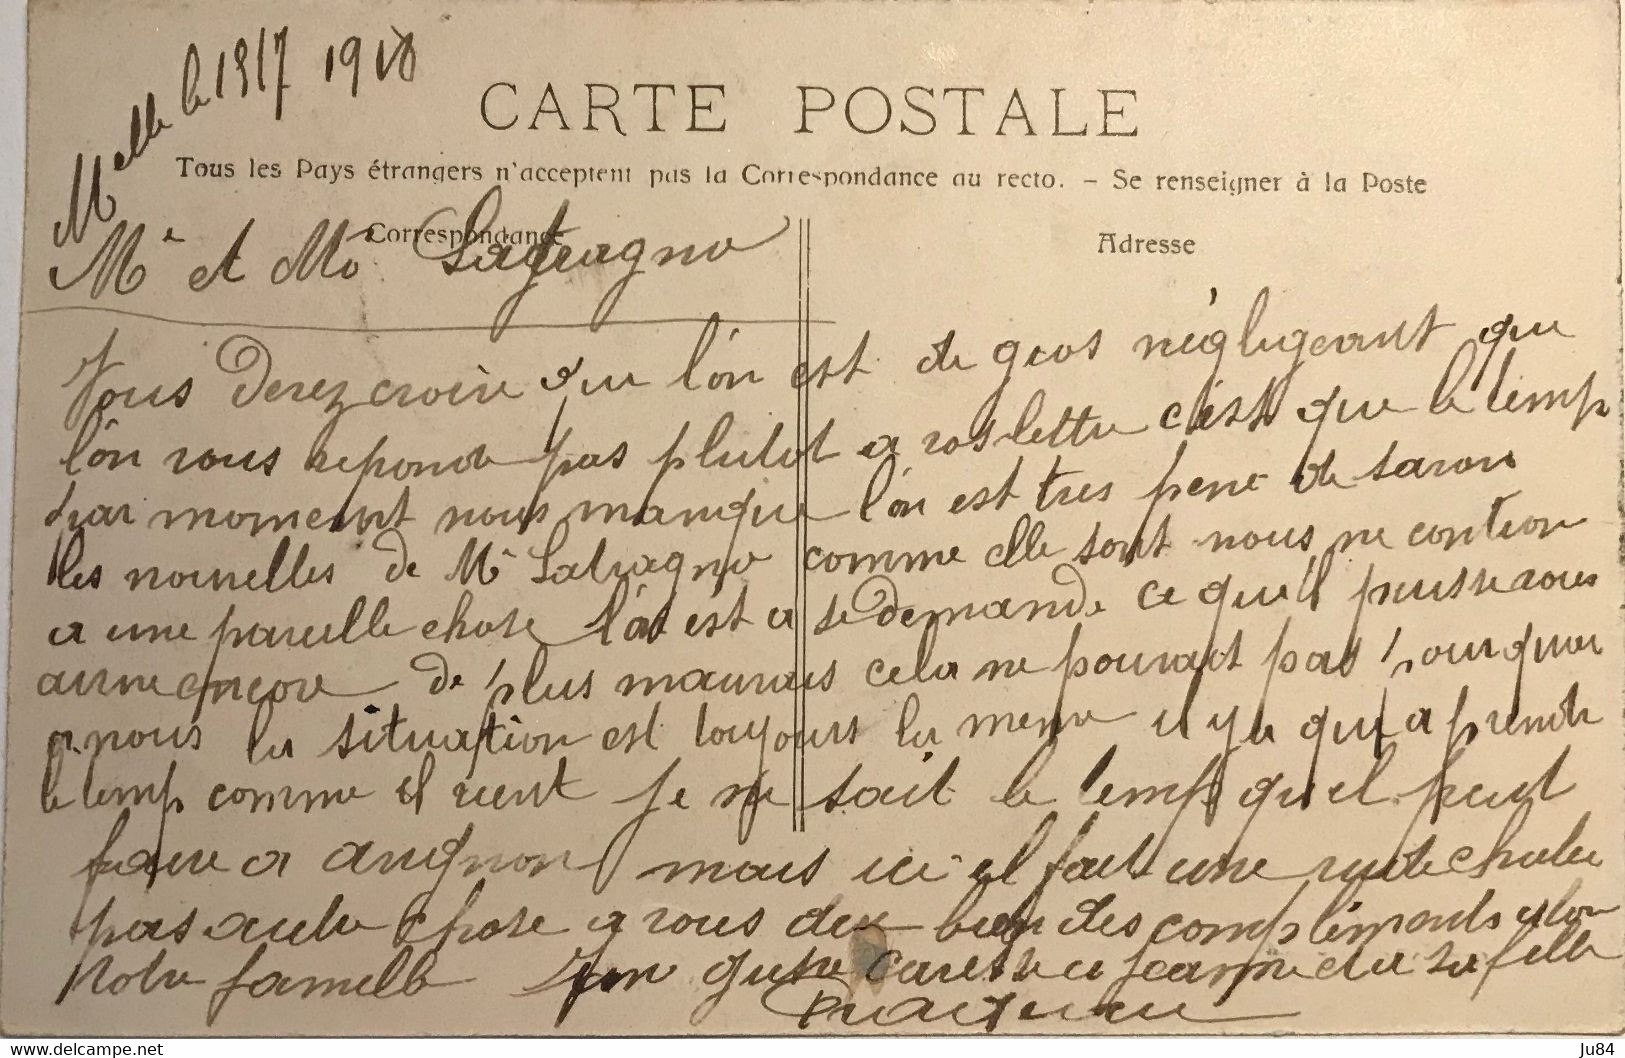 Melle le 1317 1918
CARTE POSTALE
Tous les Pays étrangers n'acceptent pas la Correspondance au recto. – Se renseigner à la Poste
Correspondance
Adresse
Mr et Me
Vous devez croire que l'on est de gros négligeant que
l'on vous reponde pas plutot a vos lettre c'est que le temp
par moment nous manque l'on est tres pene de savoir
les nouvelles de Mr comme elle sont nous ne contion
a une pareille chose l'on est a se demande ce qu'il puisse vous
arrive encore de plus mauvais cela ne pourait pas
a nous la situation est toujours la meme il y a qu'a prendre
le temp comme il vient je ne sait le temp qu'il peut
faire a avignon mais ici il fait une rude chaleur
pas autre chose a vous deux bien des compliments
Notre famille caresse a Jeanne et a sa fille